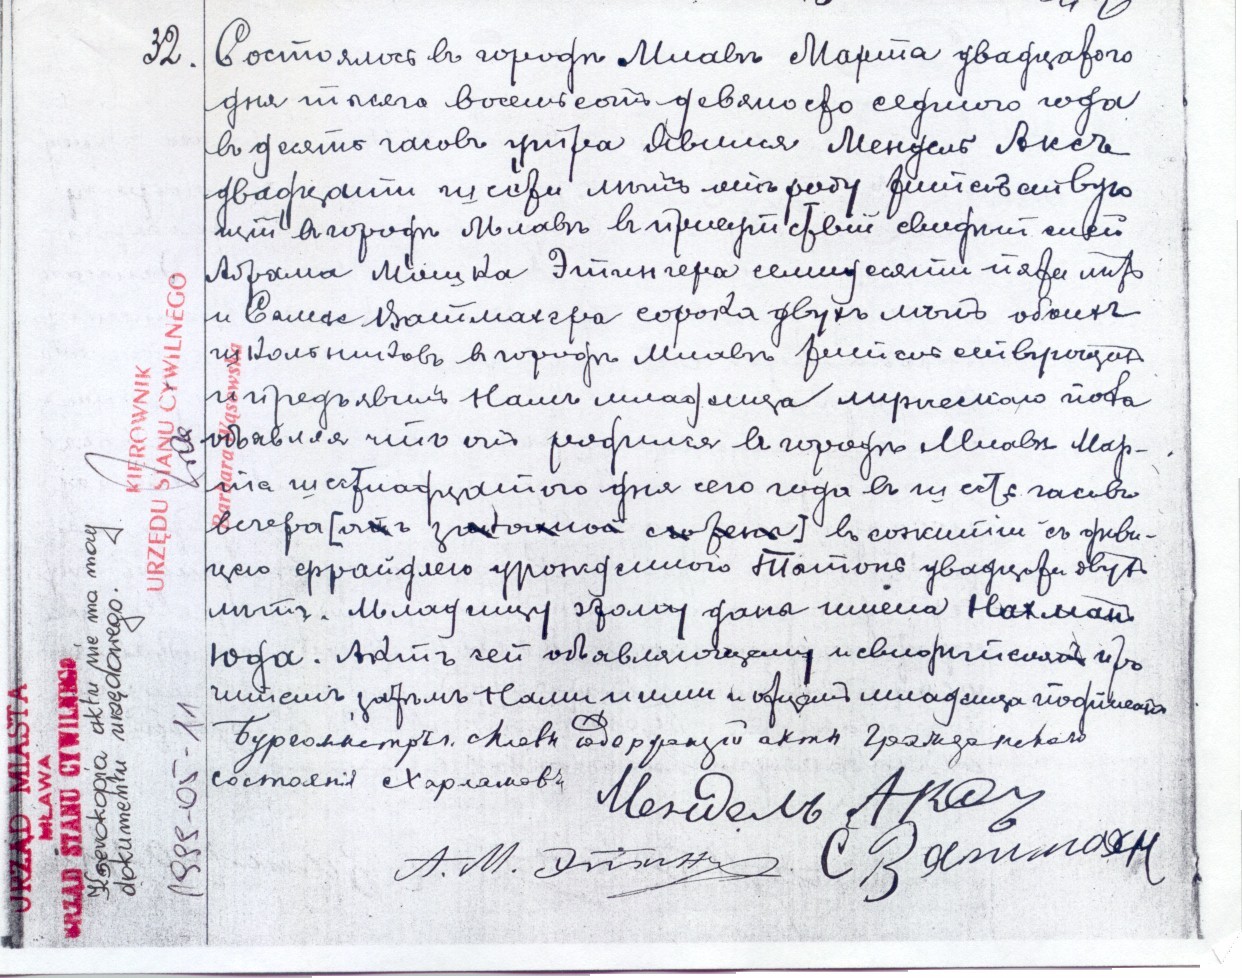 32. Состоялось въ городѣ Млавѣ Марта двадцатого
дня тысяча восемьсотъ девяносто седьмого года
въ десять часовъ утра явился Мендель Аксъ
двадцати шести лѣтъ отъ роду жительствую
щій въ городѣ Млавѣ въ присутствіи свидѣтелей
Абрама Мошка Этингера семидесяти пяти лѣтъ
и сорока двухъ лѣтъ обоихъ
школьниковъ въ городѣ Млавѣ жительствующихъ
и предъявилъ Намъ младенца мужескаго пола
объявляя что онъ родился въ городѣ Млавѣ Мар-
та шестнадцатого дня сего года въ шесть часовъ
вечера [отъ законной его жены] въ сожитіи съ дѣви-
цею Фрайдлею урожденного двадцати двухъ
лѣтъ. Младенцу этому даны имена Нахманъ
Юда. Актъ сей объявляющему и свидѣтелямъ про
читанъ, затѣмъ Нами и ими и отцемъ младенца подписанъ
Бургомистръ г. Млавы содержащій акты Гражданскаго
состоянія Харламовъ
Мендель Аксъ
А. М. Этинг
С Вайтмахи
KIEROWNIK
URZĘDU STANU CYWILNEGO
Barbara Wąsowska
URZĄD MIASTA
MŁAWA
URZĄD STANU CYWILNEGO
Kserokopia aktu nie ma mocy
dokumentu urzędowego.
1999-05-11